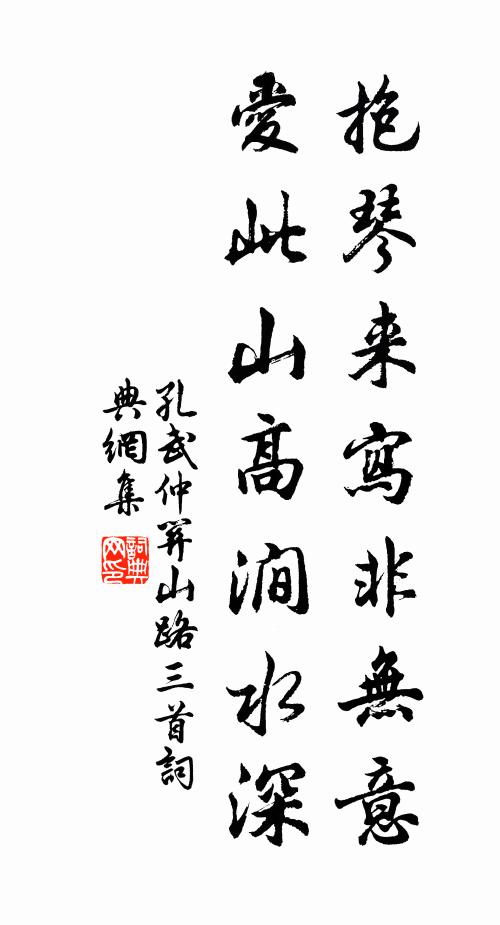 抱琴来寫非無意
愛此山高澗水深
孔武仲開山路三首詞
典網集
詞典
网印